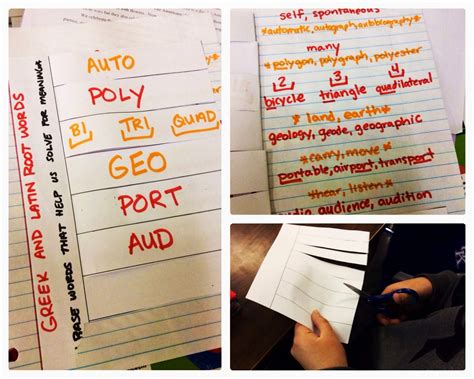 GREEK AND LATIN ROOT WORDS
BASE WORDS THAT HELP US SOLVE FOR MEANINGS
AUTO
POLY
BI TRI QUAD
GEO
PORT
AUD
self, spontaneous
*automatic, autograph, autobiography*
many
*polygon, polygraph, polyester
2 3 4
bicycle triangle quadrilateral
* land, earth *
geology, geode, geographic
*carry, move *
portable, airport, transport
*hear, listen*
audio, audience, audition